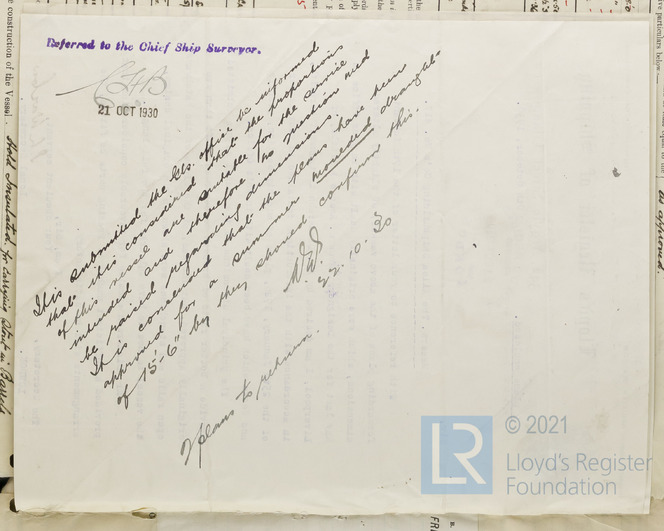 Referred to the Chief Ship Surveyor.
21 OCT 1930
It is submitted the Gls. office be informed
that it is considered that the proportions
of this vessel are suitable for the service
intended and therefore no question need
be raised regarding dimensions.
It is considered that the plans have been
approved for a summer moulded draught
of 15'-6" by they should confirm this.
22.10.30
2 plans to return.
e construction of the Vessel
Hold Insulated for carrying
ve particulars below
© 2021
LR
Lloyd's Register
Foundation